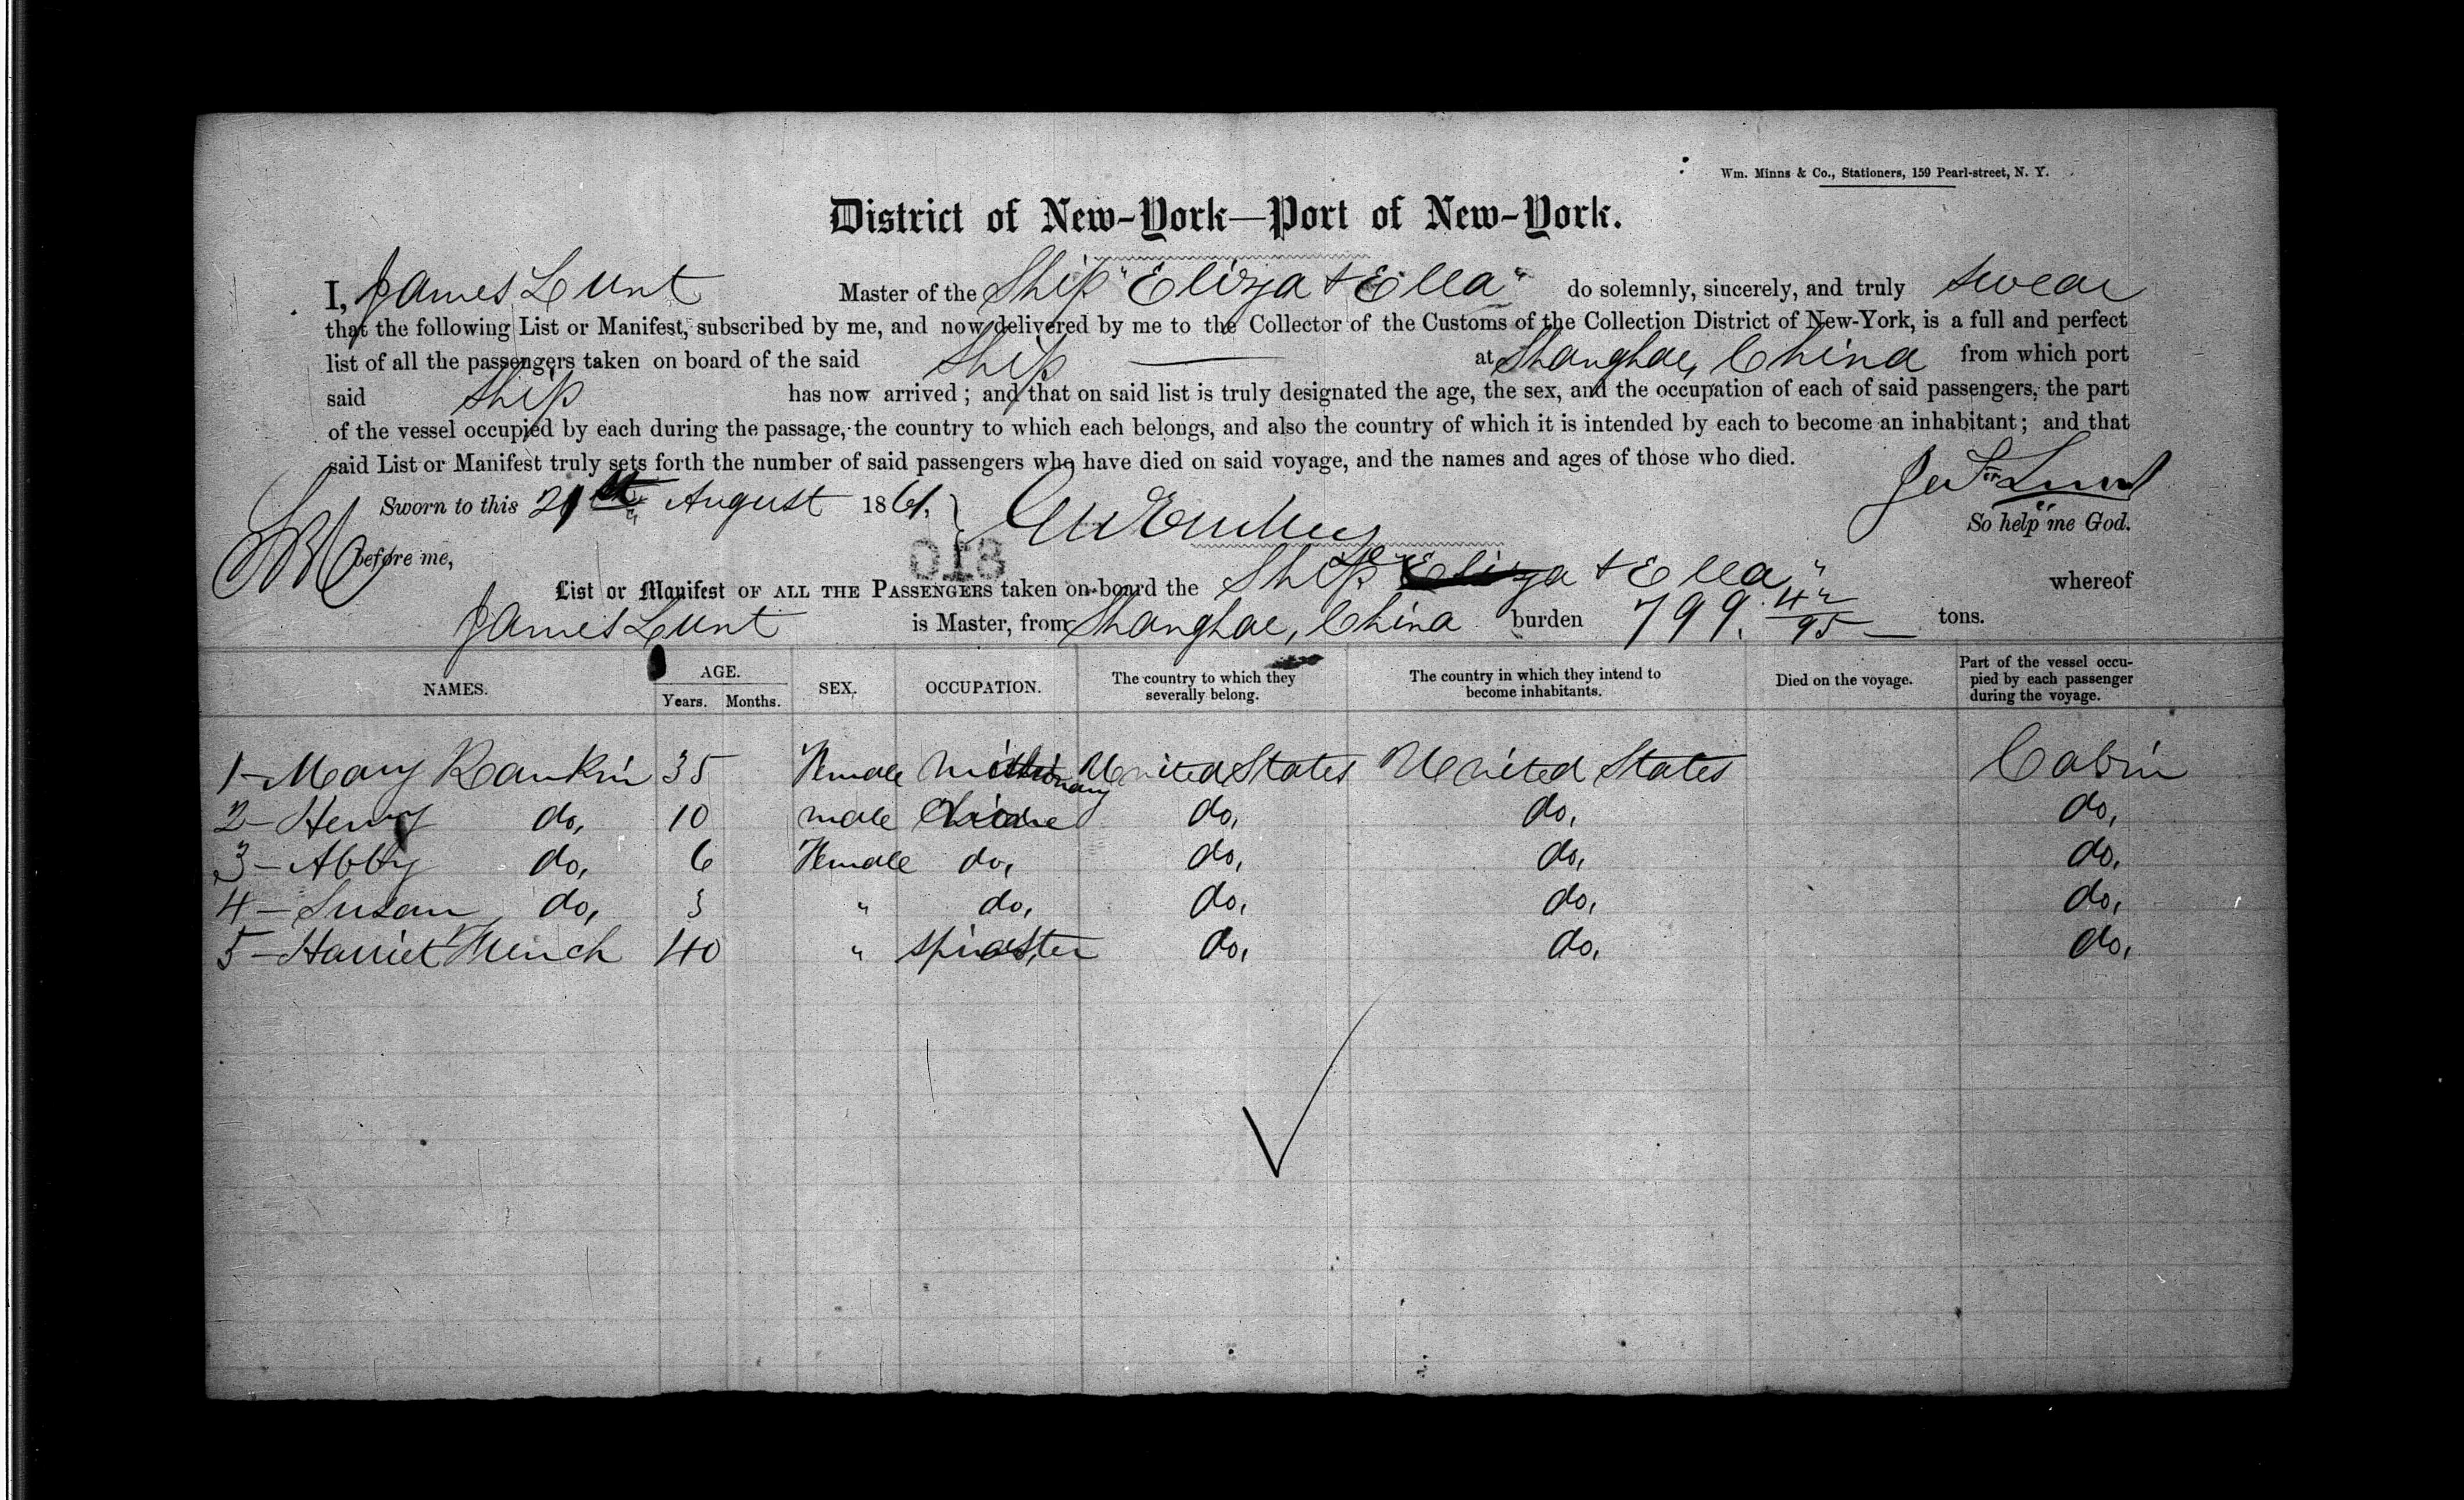 Wm. Minns & Co., Stationers, 159 Pearl-street, N. Y.
District of New-York—Port of New-York.
I, James Lunt Master of the Ship "Eliza & Ella" do solemnly, sincerely, and truly swear
that the following List or Manifest, subscribed by me, and now delivered by me to the Collector of the Customs of the Collection District of New-York, is a full and perfect
list of all the passengers taken on board of the said Ship — at Shanghae, China from which port
said Ship has now arrived; and that on said list is truly designated the age, the sex, and the occupation of each of said passengers, the part
of the vessel occupied by each during the passage, the country to which each belongs, and also the country of which it is intended by each to become an inhabitant; and that
said List or Manifest truly sets forth the number of said passengers who have died on said voyage, and the names and ages of those who died.
Lunt
Sworn to this 21st August 1861.
So help me God.
before me,
018
List or Manifest OF ALL THE PASSENGERS taken on board the Ship Eliza & Ella" whereof
James Lunt is Master, from Shanghae, China burden 799. 42/95 tons.
NAMES. AGE. Years. Months. SEX. OCCUPATION. The country to which they severally belong. The country in which they intend to become inhabitants. Died on the voyage. Part of the vessel occupied by each passenger during the voyage.
1- Mary Rankin 35 Female missionary United States United States Cabin
2- Henry do, 10 male do, do, do,
3- Abby do, 6 Female do, do, do, do,
4- Susan do, 3 " do, do, do, do,
5- Harriet 40 " spinster do, do, do,